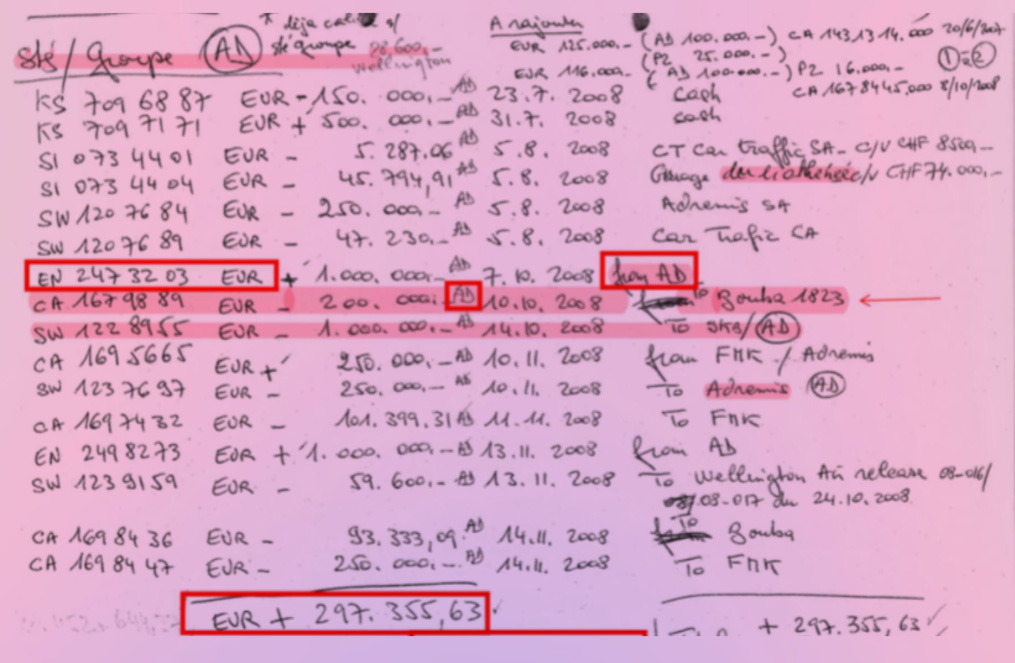 * déjà calculé s/
sté groupe 26.600.-
Wellington
Sté/Groupe (AD)
A rajouter
EUR 125.000.- (AD 100.000.-) CA 1431314.000 20/6/2007
(P2 25.000.-)
EUR 116.000.- (AD 100.000.-) P2 16.000.-
CA 1678445,000 8/10/2008
KS 709 68 87 EUR - 150.000,- AD 23.7.2008 cash
KS 709 71 71 EUR + 500.000,- AD 31.7.2008 cash
SI 073 44 01 EUR - 5.287,06 AD 5.8.2008 CT Car traffic SA - C/V CHF 8500,-
SI 073 44 04 EUR - 45.794,91 AD 5.8.2008 Garage c/v CHF 74.000,-
SW 120 76 84 EUR - 250.000,- AD 5.8.2008 Adremis SA
SW 120 76 89 EUR - 47.230,- AD 5.8.2008 Car Trafic CA
EN 247 32 03 EUR + 1.000.000,- AD 7.10.2008 from AD
CA 167 98 89 EUR - 200.000,- AD 10.10.2008 To Bouba 1823
SW 122 89 55 EUR - 1.000.000,- AD 14.10.2008 To SKB/(AD)
CA 169 5665 EUR + 250.000,- AD 10.11.2008 from FMK / Adremis
SW 123 76 97 EUR - 250.000,- AD 10.11.2008 To Adremis (AD)
CA 169 74 32 EUR - 101.399,31 AD 11.11.2008 To FMK
EN 249 82 73 EUR + 1.000.000,- AD 13.11.2008 from AD
SW 123 91 59 EUR - 59.600,- AD 13.11.2008 To Wellington Air release 08-016/
08-017 du 24.10.2008
CA 169 84 36 EUR - 93.333,09 AD 14.11.2008 To Bouba
CA 169 84 47 EUR - 250.000,- AD 14.11.2008 To FMK
EUR + 297.355,63
+ 297.355,63